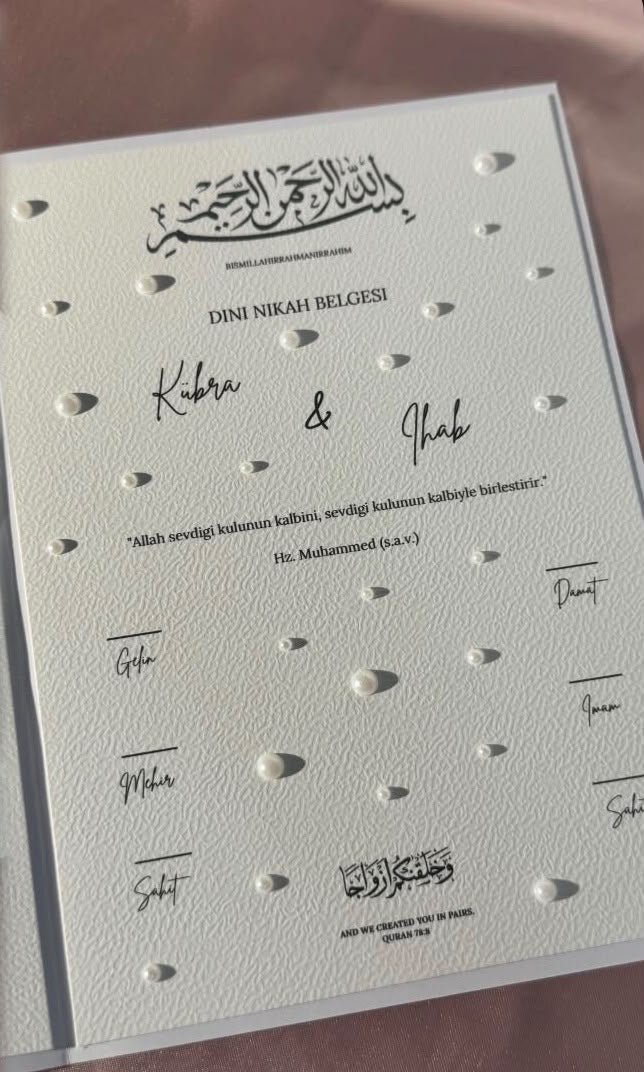 بِسْمِ اللّٰهِ الرَّحْمٰنِ الرَّحِيْمِ
BISMILLAHIRRAHMANIRRAHIM
DINI NIKAH BELGESI
Kübra
&
Jhab
"Allah sevdigi kulunun kalbini, sevdigi kulunun kalbiyle birlestirir."
Hz. Muhammed (s.a.v.)
Damat
Gelin
Imam
Mehir
Sahit
Sahit
وَخَلَقْنٰكُمْ اَزْوَاجًا
AND WE CREATED YOU IN PAIRS.
QURAN 78:8